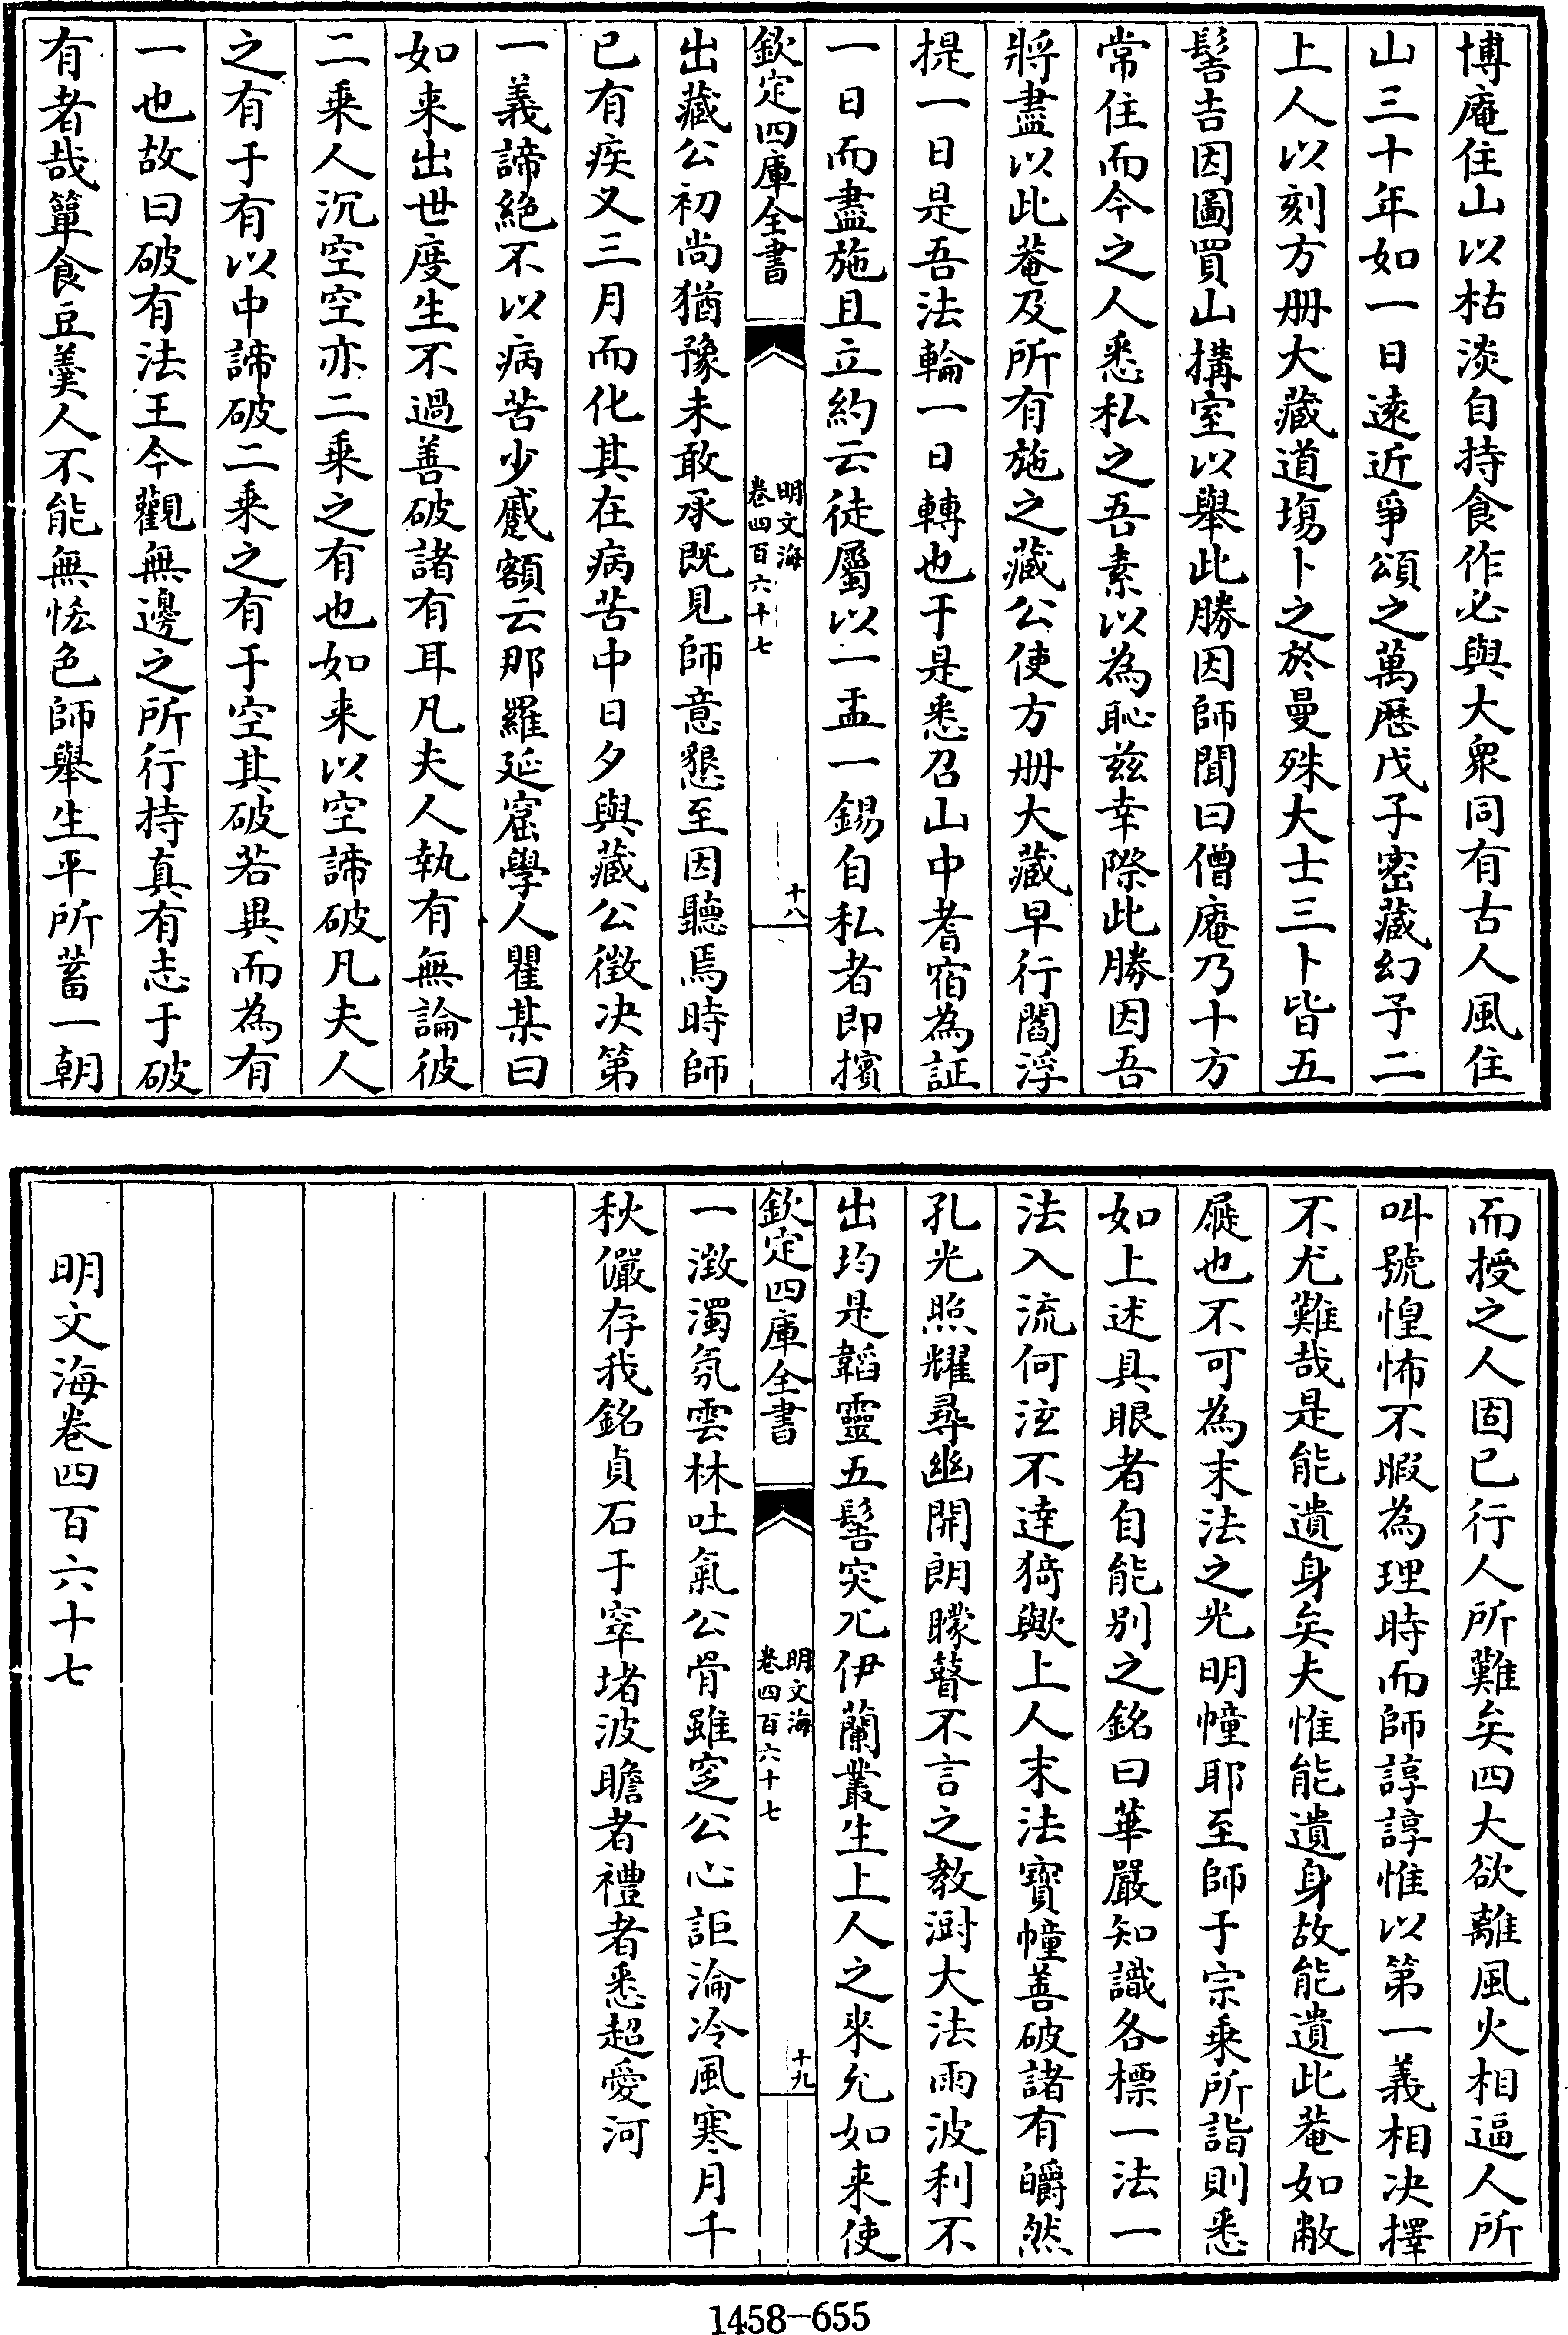 博庵住山以枯淡自持食作必與大衆同有古人風住
山三十年如一日逺近爭頌之萬厯戊子密藏幻予二
上人以刻方册大藏道塲卜之於曼殊大士三卜皆五
髻吉因圖買山搆室以舉此勝因師聞曰僧庵乃十方
常住而今之人悉私之吾素以為恥兹幸際此勝因吾
將盡以此菴及所有施之藏公使方册大藏早行閻浮
提一日是吾法輪一日轉也于是悉召山中耆宿為証
一日而盡施且立約云徒屬以一盂一錫自私者即擯
欽定四庫全書
明文海
卷四百六十七
十八
出藏公初尚猶豫未敢承既見師意懇至因聽焉時師
已有疾又三月而化其在病苦中日夕與藏公徴决第
一義諦絶不以病苦少慼額云那羅延窟學人瞿某曰
如来出世度生不過善破諸有耳凡夫人執有無論彼
二乘人沉空空亦二乘之有也如来以空諦破凡夫人
之有于有以中諦破二乘之有于空其破若異而為有
一也故曰破有法王今觀無邊之所行持真有志于破
有者哉簞食豆羮人不能無恡色師舉生平所蓄一朝
而授之人固已行人所難矣四大欲離風火相逼人所
呌號惶怖不暇為理時而師諄諄惟以第一義相决擇
不尤難哉是能遺身矣夫惟能遺身故能遺此菴如敝
屣也不可為末法之光明幢耶至師于宗乘所詣則悉
如上述具眼者自能别之銘曰華嚴知識各標一法一
法入流何泫不達猗歟上人末法寳幢善破諸有皭然
孔光照耀尋幽開朗矇瞽不言之教澍大法雨波利不
出均是韜靈五髻突兀伊蘭叢生上人之來允如来使
欽定四庫全書
明文海
卷四百六十七
十九
一激濁氛雲林吐氣公骨雖窆公心詎淪冷風寒月千
秋儼存我銘貞石于窣堵波瞻者禮者悉超愛河
明文海卷四百六十七
1458-655